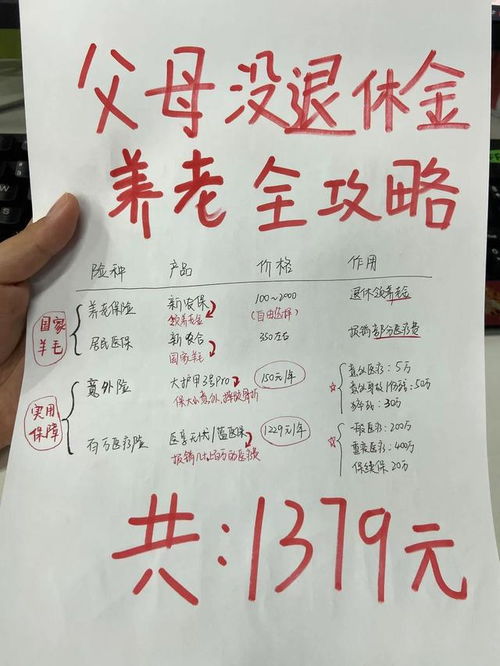 父母没退休金
养老全攻略
险种 产品 价格 作用
国家羊毛
养老保险 新农保 100~2000 退休领养老金
领养老金 (自由选择)
居民医保 新农合 350左右 报销部分医疗费
国家羊毛
实用保障
意外险 大护甲3号Pro 150元/年 意外医疗:5万
保大小意外、摔伤骨折 意外身故/伤残:50万
猝死:30万
百万医疗险 医享无忧/蓝医保 1229元/年 一般医疗:200万
报销几十上百万的医疗费 重疾医疗:400万
保续保20万
共:1379元